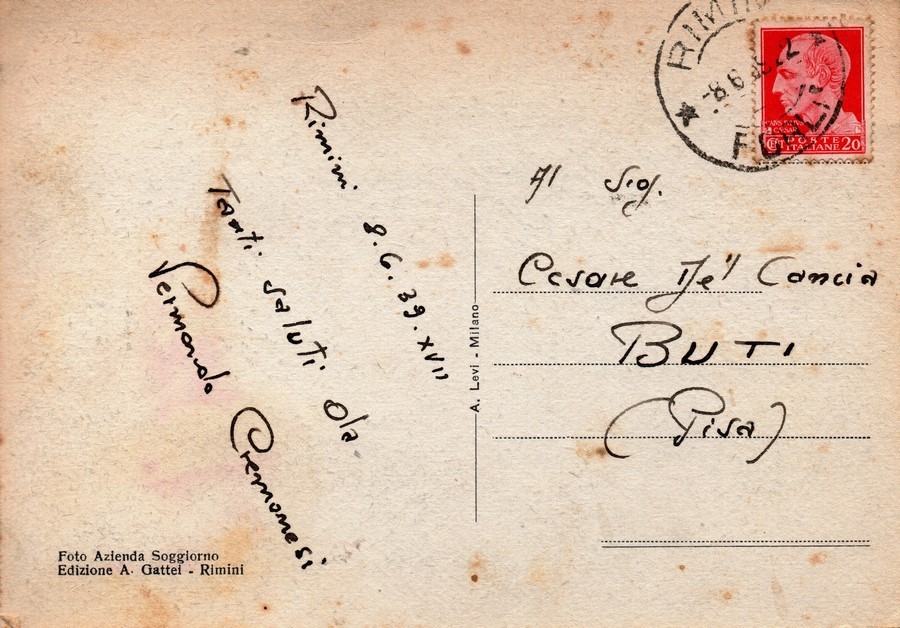 Rimini 8.6.39.XVII
Tanti saluti da
Cremonesi
Foto Azienda Soggiorno
Edizione A. Gattei - Rimini
A. Levi - Milano
RIMINI
-8.6.39.22
FORLI
POSTE
ITALIANE 20
Al Sig.
Cesare Del Cancia
BUTI
(Pisa)